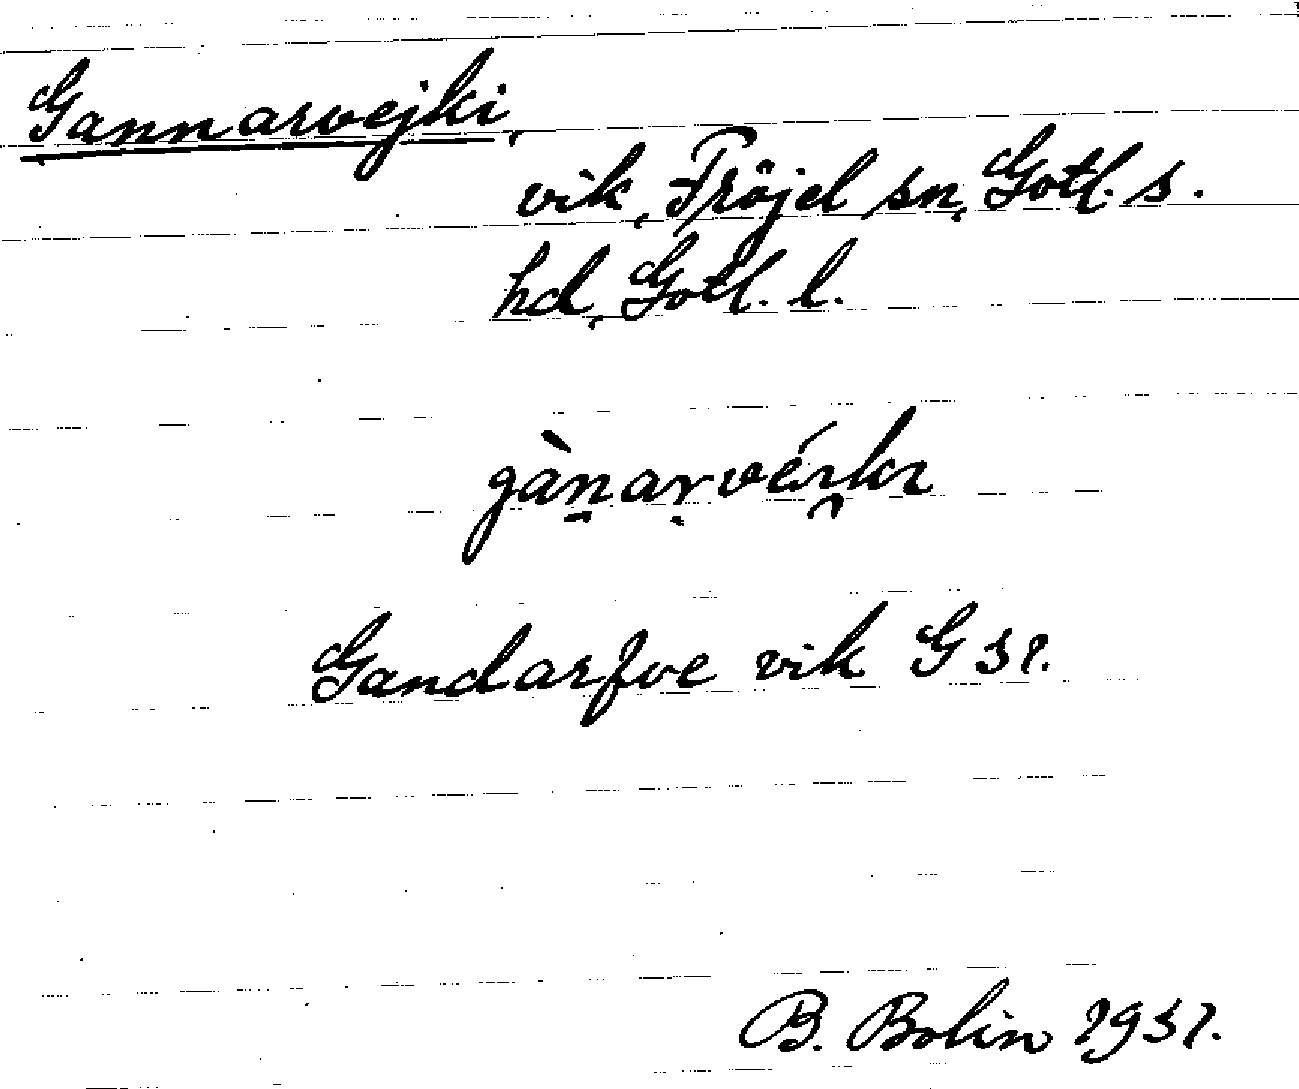 Gannarvejki,
vik, Fröjel sn, Gotl. s.
hd, Gotl. l.
Gandarfve vik G 31.
B. Bolin 1931.